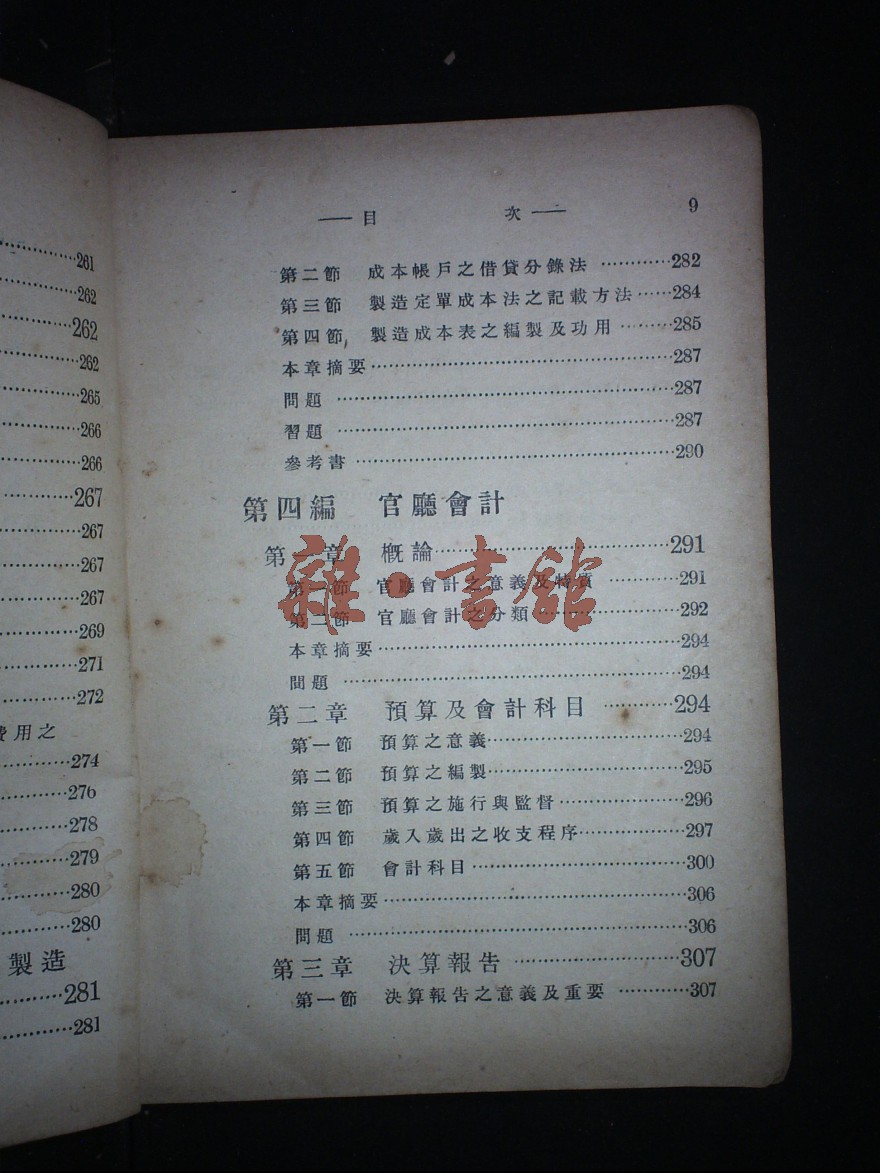 261
262
262
262
265
266
266
267
267
267
267
269
271
272
費用之
274
276
278
279
280
280
製造
281
281
—— 目 次 —— 9
第二節 成本帳戶之借貸分錄法 …………282
第三節 製造定單成本法之記載方法……284
第四節 製造成本表之編製及功用………285
本章摘要…………287
問題…………287
習題…………287
參考書…………290
第四編 官廳會計
第一章 概論…………291
第一節 官廳會計之意義及特質…………291
第二節 官廳會計之分類…………292
本章摘要…………294
問題…………294
第二章 預算及會計科目…………294
第一節 預算之意義…………294
第二節 預算之編製…………295
第三節 預算之施行與監督…………296
第四節 歲入歲出之收支程序…………297
第五節 會計科目…………300
本章摘要…………306
問題…………306
第三章 決算報告…………307
第一節 決算報告之意義及重要…………307
雜·書館